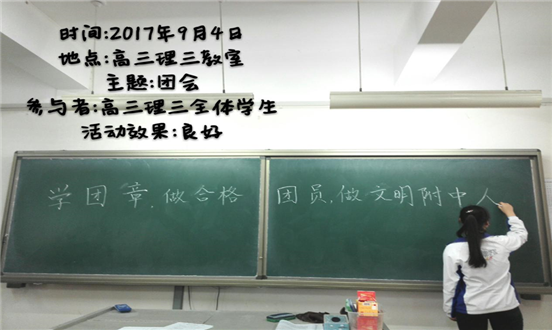 时间:2017年9月4日
地点:高三理三教室
主题:团会
参与者:高三理三全体学生
活动效果:良好
学团章,做合格团员,做文明附中人